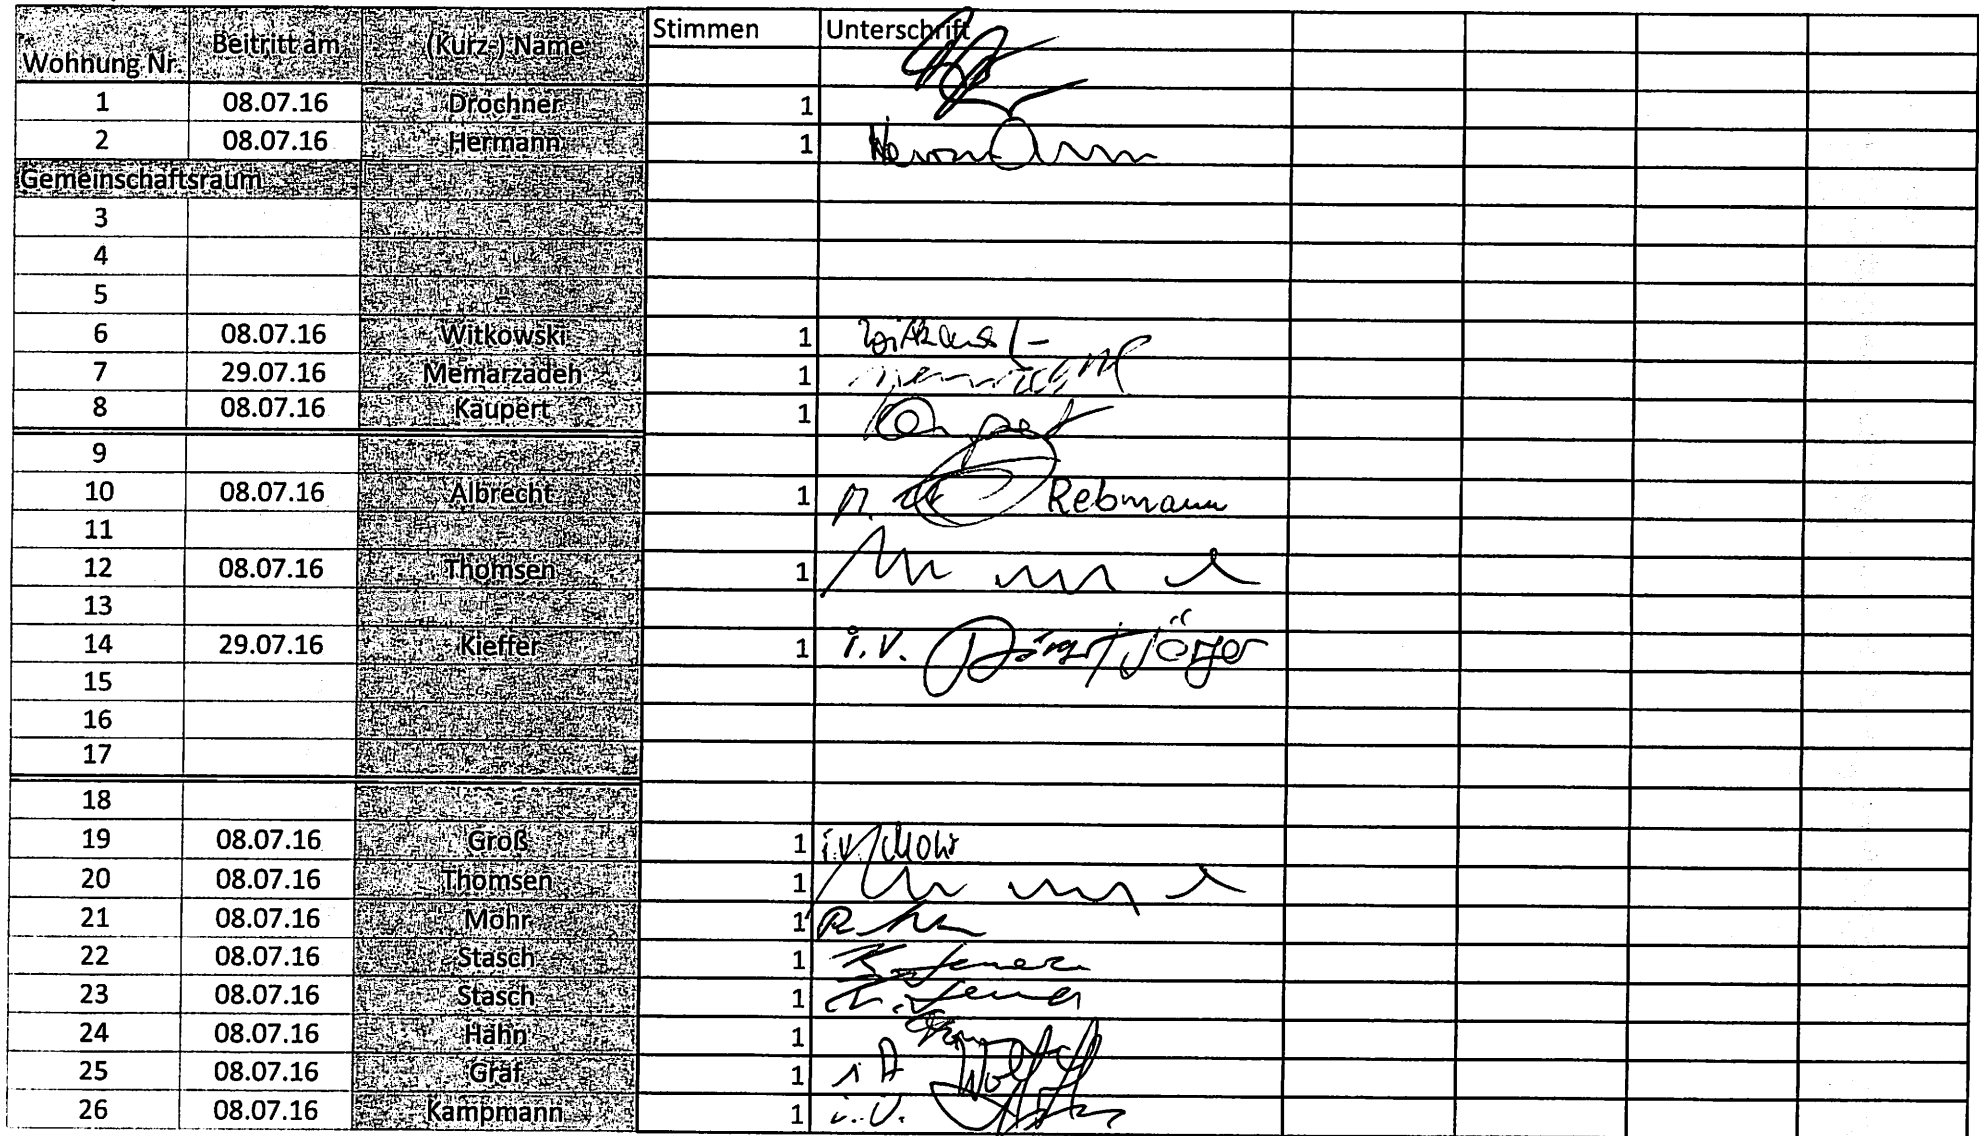 Wohnung Nr. Beitritt am (Kurz-) Name Stimmen Unterschrift
1 08.07.16 Drochner 1
2 08.07.16 Hermann 1 Hermann
Gemeinschaftsraum
3 -
4 -
5 -
6 08.07.16 Witkowski 1
7 29.07.16 Memarzadeh 1
8 08.07.16 Kaupert 1
9
10 08.07.16 Albrecht 1 Rebmann
11
12 08.07.16 Thomsen 1
13
14 29.07.16 Kieffer 1 i.V.
15
16
17
18 -
19 08.07.16 Groß 1 i.V. Mohr
20 08.07.16 Thomsen 1
21 08.07.16 Mohr 1
22 08.07.16 Stasch 1
23 08.07.16 Stasch 1
24 08.07.16 Hahn 1
25 08.07.16 Graf 1 i A Wolf
26 08.07.16 Kampmann 1 i.V.